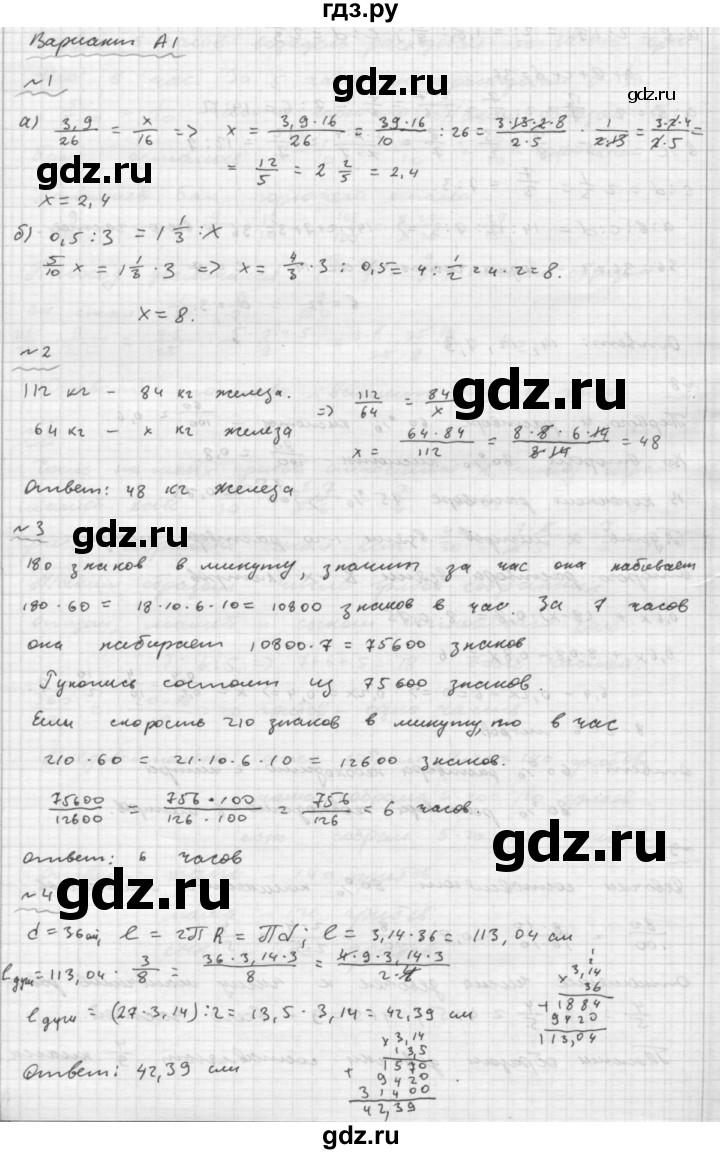 гдз.ру
Вариант А1
gdz.ru
gdz.ru
№1
gdz.ru
а) 3,9/26 = x/16 => x = 3,9·16/26 = 39·16/10 : 26 = 3·13·2·8/2·5 · 1/2·13 = 3·2·4/2·5 =
= 12/5 = 2 2/5 = 2,4
x = 2,4
б) 0,5 : 3 = 1 1/3 : x
5/10 x = 1 1/3 · 3 => x = 4/3 · 3 : 0,5 = 4 : 1/2 = 4·2 = 8.
gdz.ru
x = 8.
№2
112 кг – 84 кг железа. => 112/64 = 84/x
gdz.ru
64 кг – x кг железа
x = 64·84/112 = 8·8·6·14/8·14 = 48
gdz.ru
Ответ: 48 кг железа
gdz.ru
№3
180 знаков в минуту, значит за час она набивает
180·60 = 18·10·6·10 = 10800 знаков в час. За 7 часов
она набирает 10800·7 = 75600 знаков
gdz.ru
Рукопись состоит из 75600 знаков.
Если скорость 210 знаков в минуту, то в час
210·60 = 21·10·6·10 = 12600 знаков.
gdz.ru
75600/12600 = 756·100/126·100 = 756/126 = 6 часов.
Ответ: 6 часов
№4
gdz.ru
gdz.ru
d = 36 см, ℓ = 2πR = πd; ℓ = 3,14·36 = 113,04 см
ℓ дуги = 113,04 · 3/8 = 36·3,14·3/8 = 4·9·3,14·3/2·4
2
3,14
× 36
+ 1884
9420
113,04
ℓ дуги = (27·3,14):2 = 13,5·3,14 = 42,39 см
gdz.ru
× 3,14
13,5
1570
+ 9420
31400
42,39
Ответ: 42,39 см
gdz.ru
гдз.ру